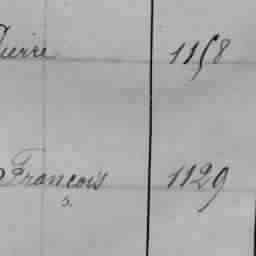 Pierre 1158
François 1129